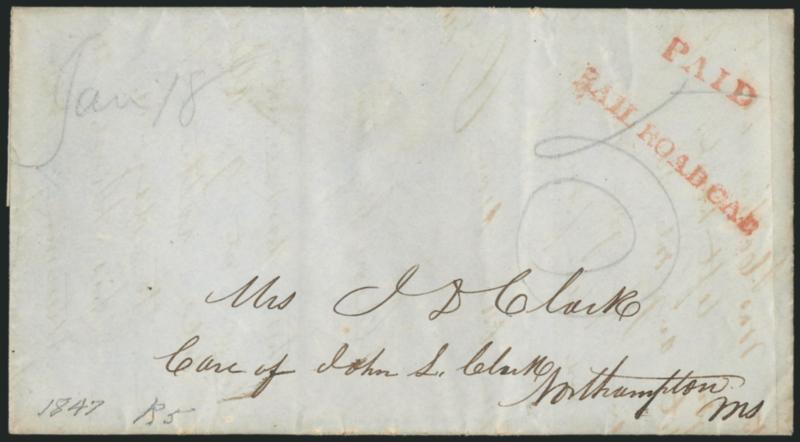 Jan 18
PAID
RAIL ROAD CAR
5
Mrs J D Clark
Care of John L. Clark
Northampton.
Ms
1847 R5